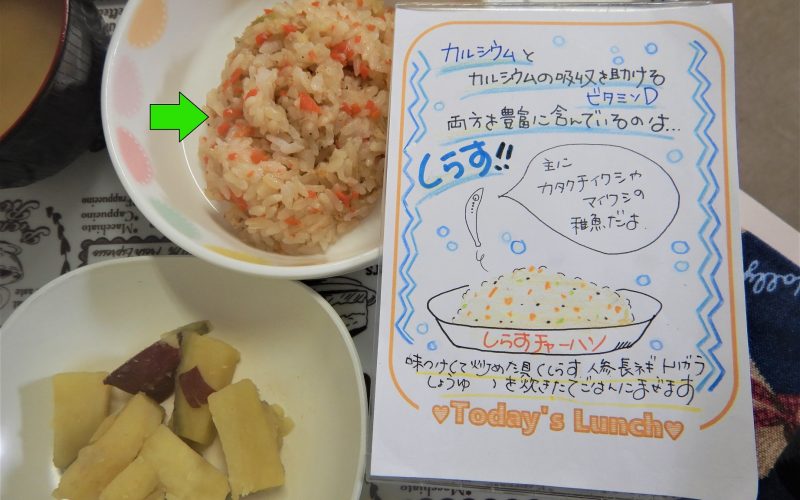 カルシウムと
カルシウムの吸収を助ける
ビタミンD
両方を豊富に含んでいるのは…
しらす!!
主に
カタクチイワシや
マイワシの
稚魚だよ
しらすチャーハン
味つけして炒めた具(しらす 人参 長ネギ トリガラ
しょうゆ )を炊きたてごはんにまぜます
♥Today's Lunch♥
Macchiato
Cappuccino
Frappuccino
Espresso
Holly
Macchiato